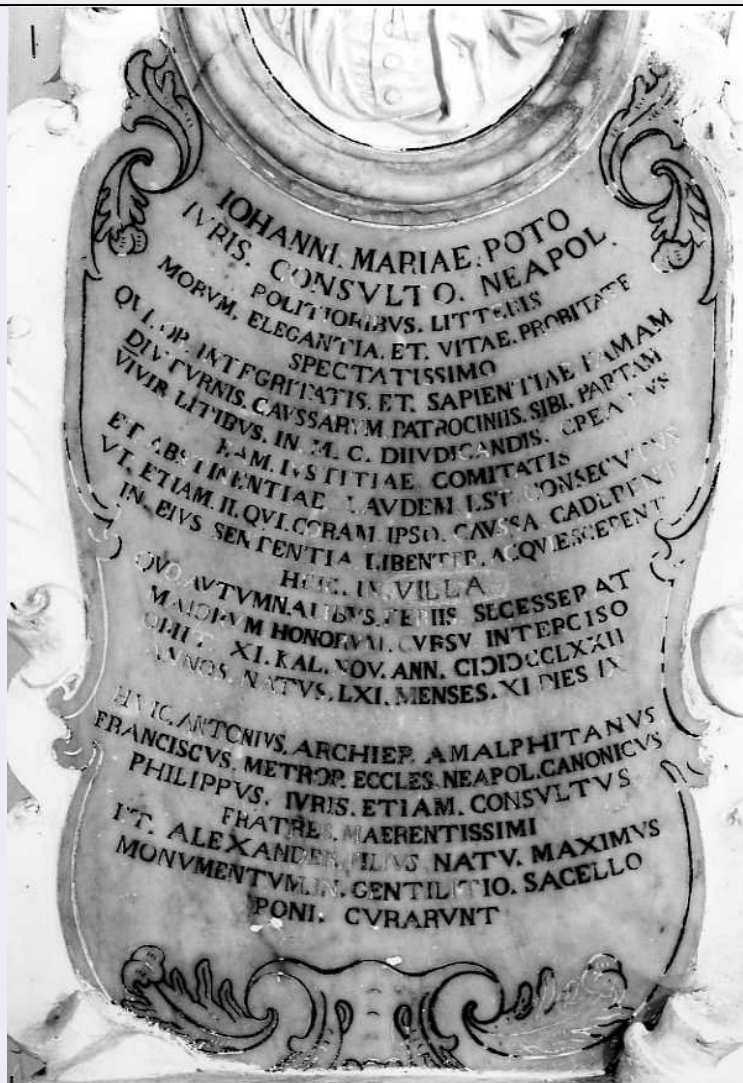 IOHANNI. MARIAE. POTO
IVRIS. CONSVLTO. NEAPOL.
POLITIORIBVS. LITTERIS
MORVM. ELEGANTIA. ET. VITAE. PROBITATE
SPECTATISSIMO
QVI. OB. INTEGRITATIS. ET. SAPIENTIAE FAMAM
DIVTVRNIS. CAVSSARVM. PATROCINIIS. SIBI. PARTAM
VIVIR LITIBVS. IN. M. C. DIIVDICANDIS. CREATVS
EAM. IVSTITIAE COMITATIS
ET ABSTINENTIAE LAVDEM EST. CONSECVTVS
VT. ETIAM. II. QVI. CORAM. IPSO. CAVSSA CADERENT
IN. EIVS SENTENTIA LIBENTER. ACQVIESCERENT
HEIC. IN. VILLA
QVO. AVTVMNALIBVS. FERIIS. SECESSERAT
MAIORVM HONORVM. CVRSV INTERCISO
OBIIT XI. KAL. NOV. ANN. CIƆIƆCCLXXII
ANNOS. NATVS. LXI. MENSES. XI DIES IX
HVIC. ANTONIVS. ARCHIEP. AMALPHITANVS
FRANCISCVS. METROP. ECCLES. NEAPOL. CANONICVS
PHILIPPVS. IVRIS. ETIAM. CONSVLTVS
FRATRES. MAERENTISSIMI
ET. ALEXANDER FILIVS. NATV. MAXIMVS
MONVMENTVM. IN. GENTILITIO. SACELLO
PONI. CVRARVNT